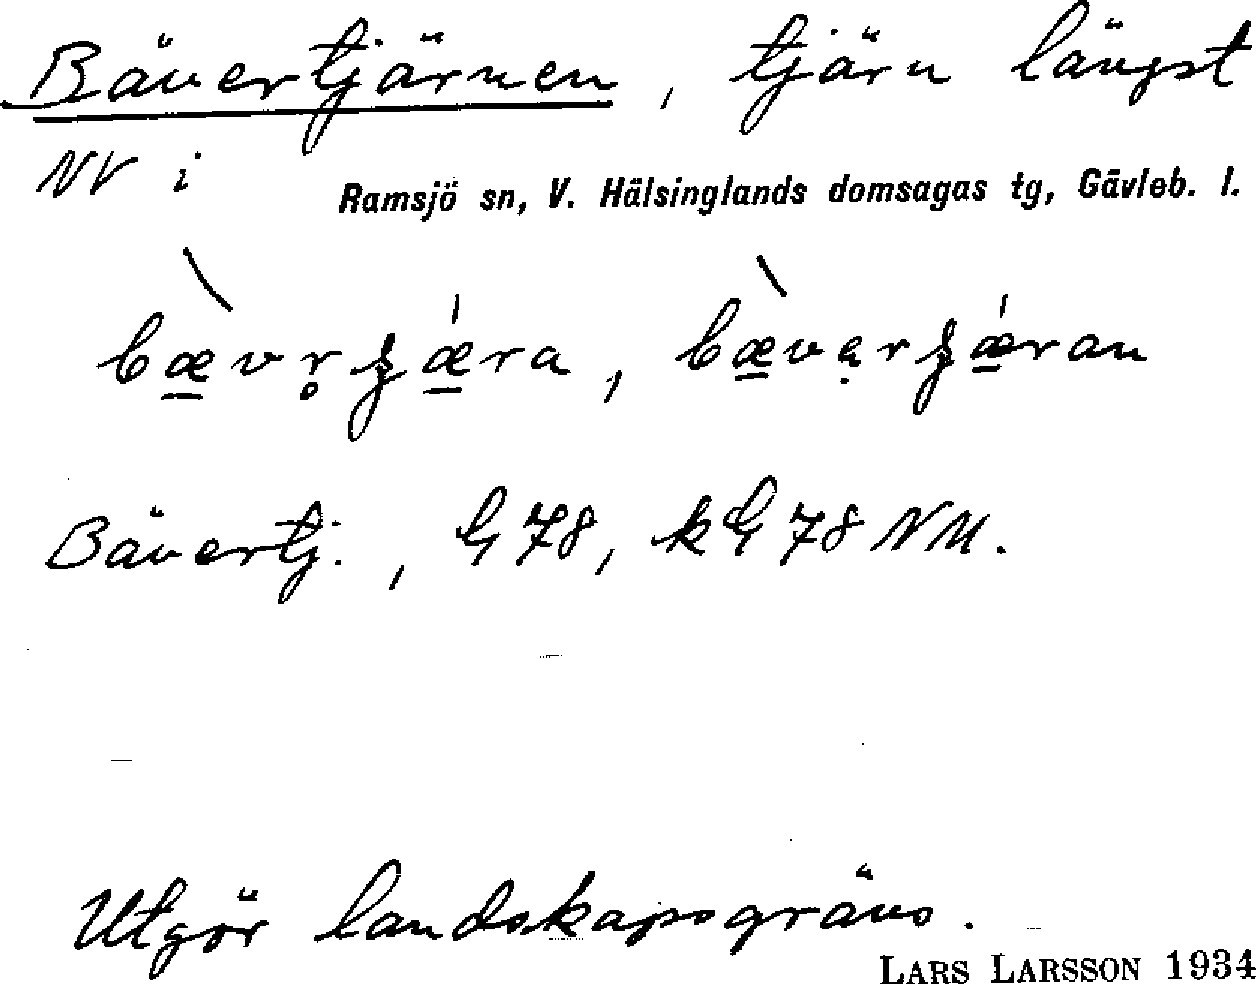 Bävertjärnen, tjärn längst
NV i Ramsjö sn, V. Hälsinglands domsagas tg, Gävleb. l.
Bävertj., G 78, kG 78 NM.
Utgör landskapsgräns.
LARS LARSSON 1934